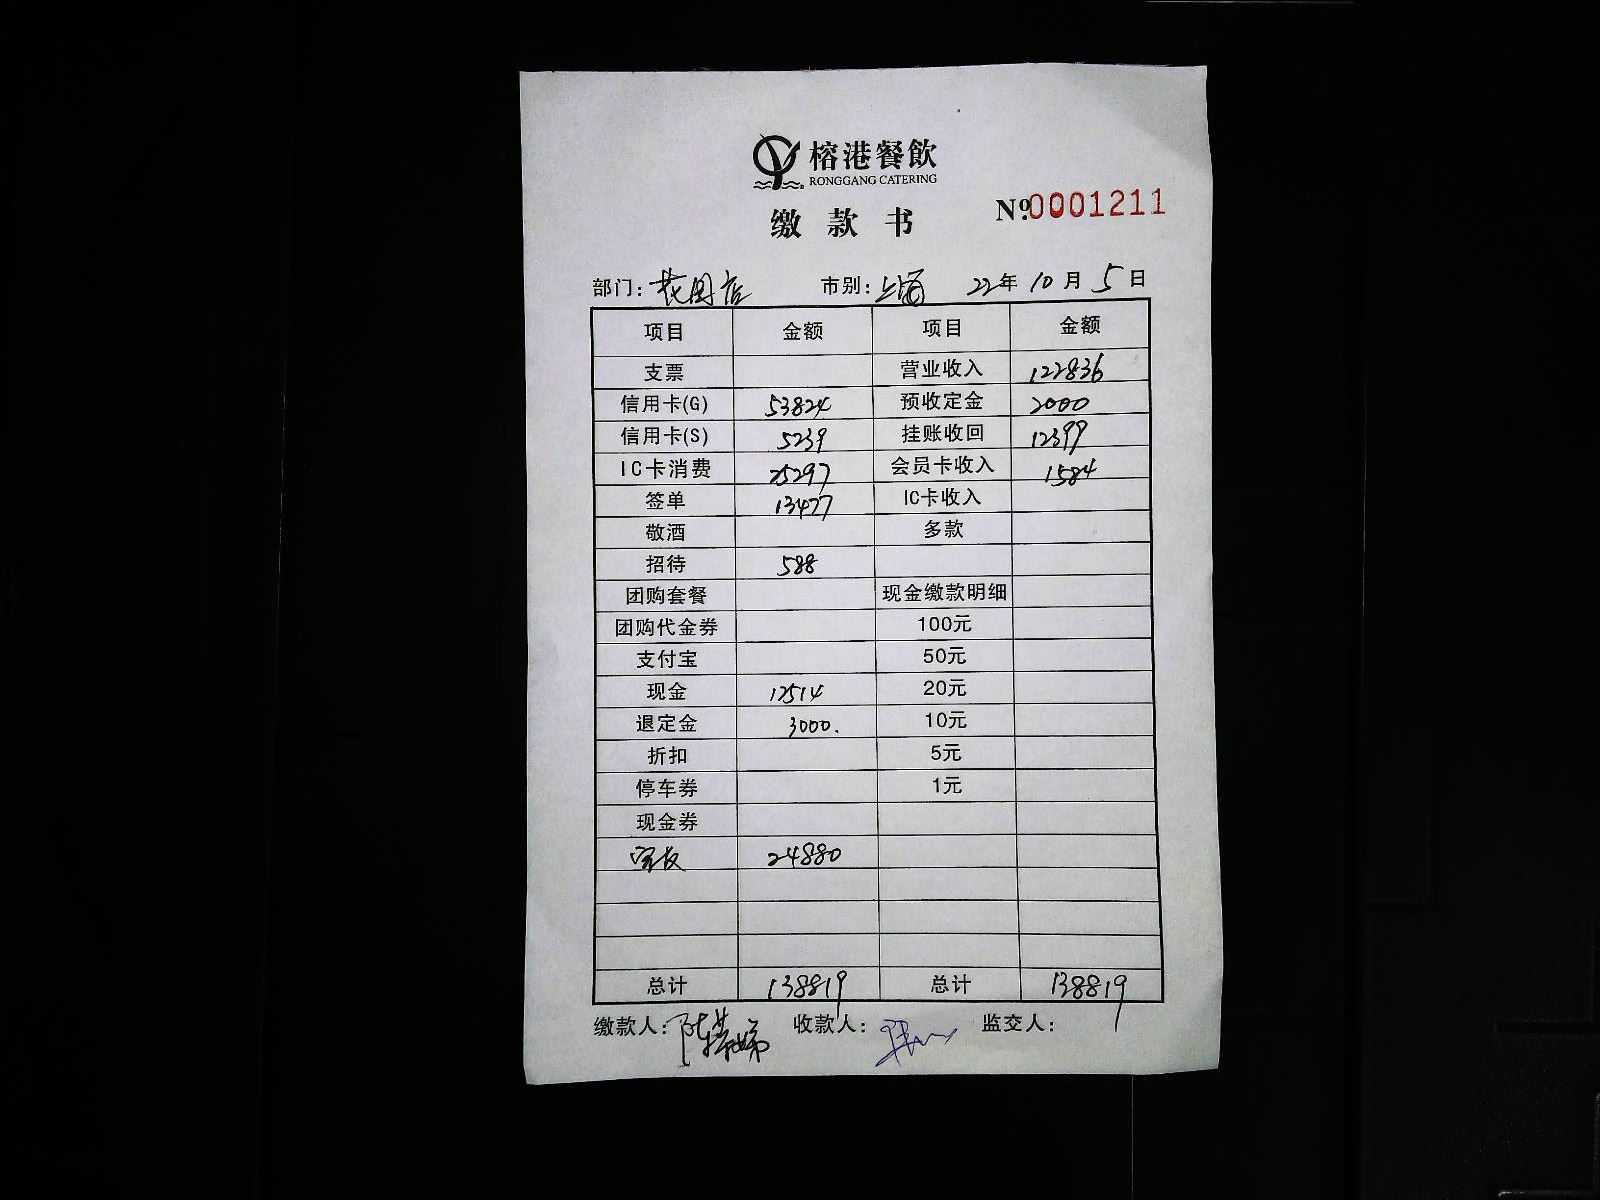 榕港餐飲
RONGGANG CATERING
缴款书
№0001211
部门:花园店 市别:上海 22年10月5日
项目 金额 项目 金额
支票 营业收入 122836
信用卡(G) 53824 预收定金 2000
信用卡(S) 5239 挂账收回 12399
IC卡消费 25297 会员卡收入 1584
签单 13477 IC卡收入
敬酒 多款
招待 588
团购套餐 现金缴款明细
团购代金券 100元
支付宝 50元
现金 12514 20元
退定金 3000. 10元
折扣 5元
停车券 1元
现金券
24880
总计 138819 总计 138819
缴款人:陈 收款人: 监交人: